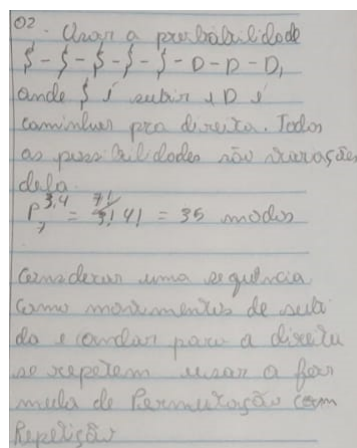 02 - Usar a probabilidade
S - S - S - S - S - D - D - D,
onde S é subir e D é
caminhar pra direita. Todas
as possibilidades são variações
dela.
P₇^3,4 = 7!/3! 4! = 35 modos
Considerar uma sequência
como movimentos de subi
da e andar para a direita
se repetem usar a fór
mula de Permutação com
Repetição